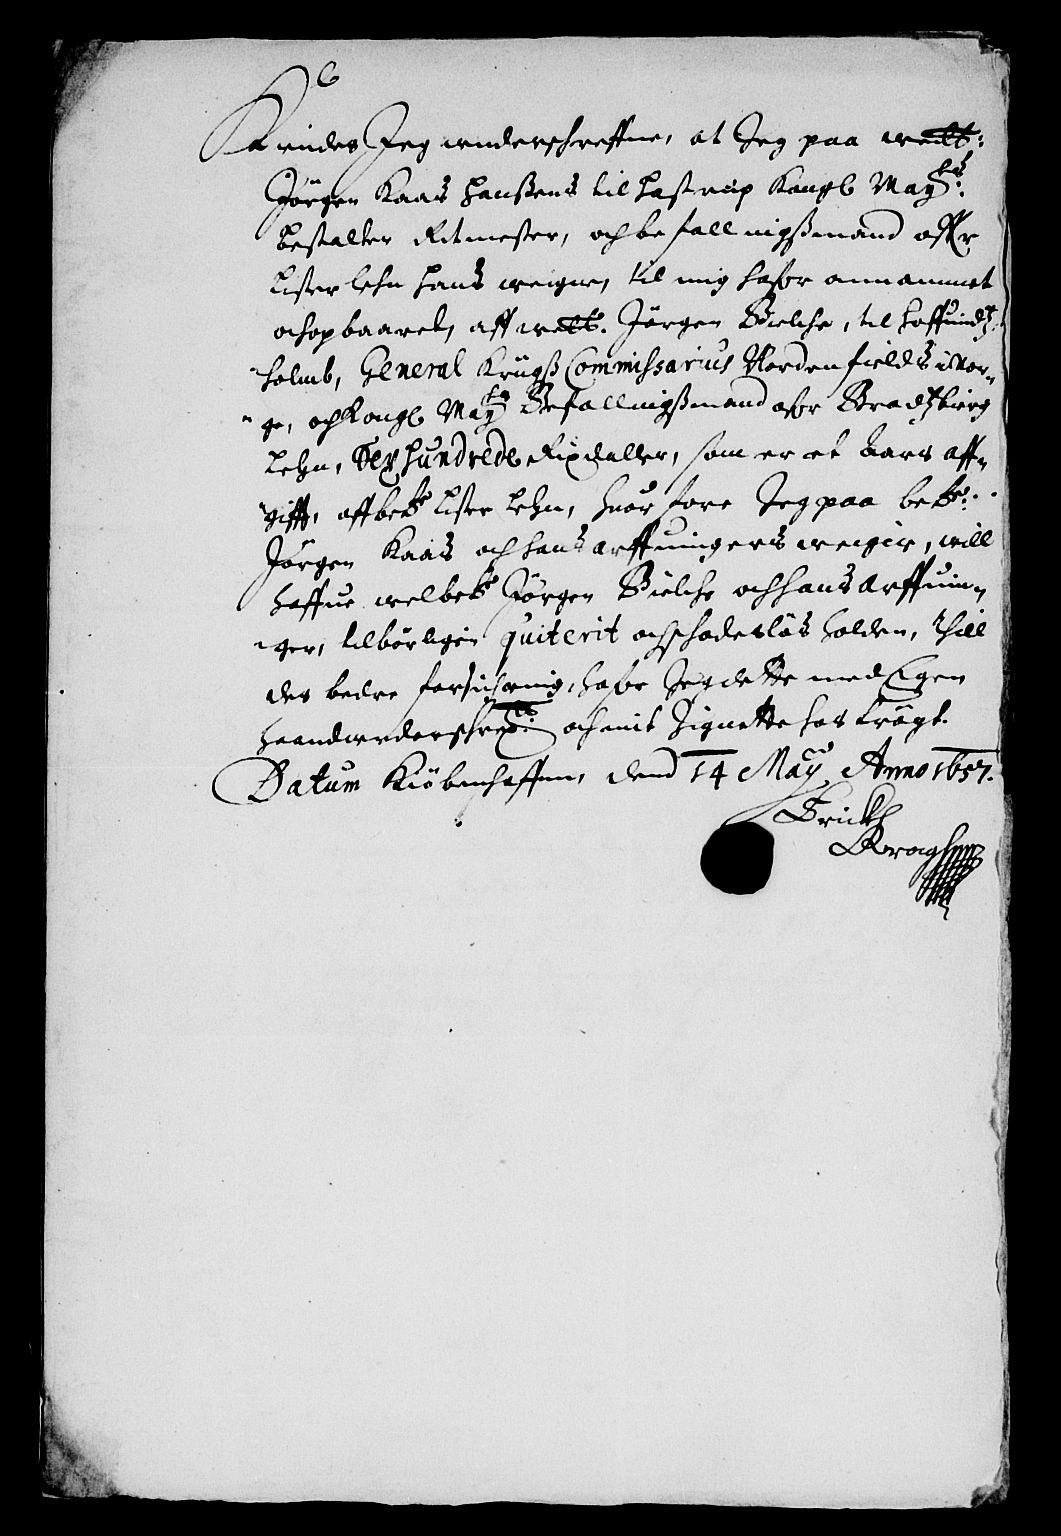 Kiendes Jeg underschreffne, at Jeg paa welb:
Jørgen Kaas Hanßens til Hastrup Kongl May:tts
bestalter Ritmester, och befallnigßmand offr
Lister lehn hans weigne, til mig hafr annammet
och opbaaret, aff welb. Jørgen Bielche, til Hoffuindtz
holmb, General Krügß Commissarius Norden fields i Nor-
ge, och Kongl May:tts Befallnigßmand ofr Bradtzbierg
Lehn, Sex hundrede Rixdaller, som er et Aars aff-
gifft, aff bete Lister Lehn, huorfore Jeg paa bete:
Jørgen Kaas och hans arffuingers weigne, will
haffue welbete Jørgen Bielche och hans Arffuin-
ger, tilbørligen quiterit och schadesløs holden, Thill
des bedre forsichring, hafr Jeg dette med Egen
haand underschreffuit och mit Signette hos trøgt.
Datum Kiøbenhaffn, dend 14 May Anno 1657.
Erick
Kragh